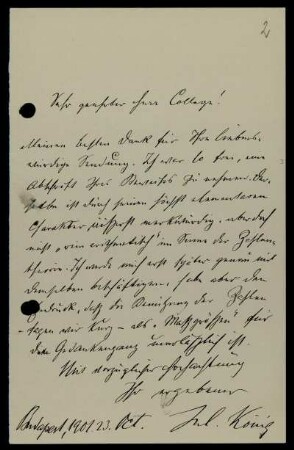 2
Sehr geehrter Herr College!
Meinen besten Dank für Ihre liebens-
würdige Sendung. Ich war so frei, eine
Abschrift Ihres Beweises zu nehmen. Der-
selbe ist durch seinen höchst elementaren
Charakter äusserst merkwürdig, aber doch
nicht „rein arithmetisch" im Sinne der Zahlen-
theorie. Ich werde mich erst später genau mit
demselben beschäftigen, habe aber den
Eindruck, daß die Benützung der Zahlen
– sagen wir kurz – als „Maßgrößen" für
den Gedankengang unerläßlich ist.
Mit vorzüglicher Hochachtung
Ihr ergebener
Jul. König
Budapest, 1901. 23. Oct.